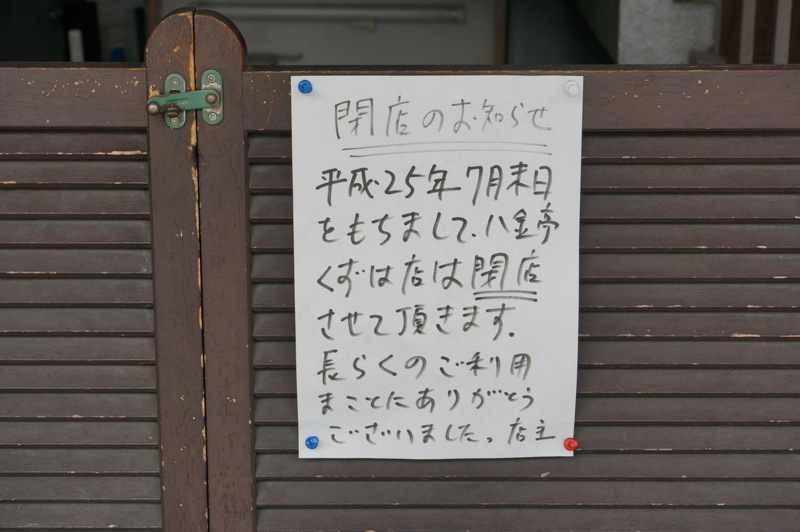 閉店のお知らせ
平成25年7月末日
をもちまして、八金亭
くずは店は閉店
させて頂きます。
長らくのご利用
まことにありがとう
ございました。店主